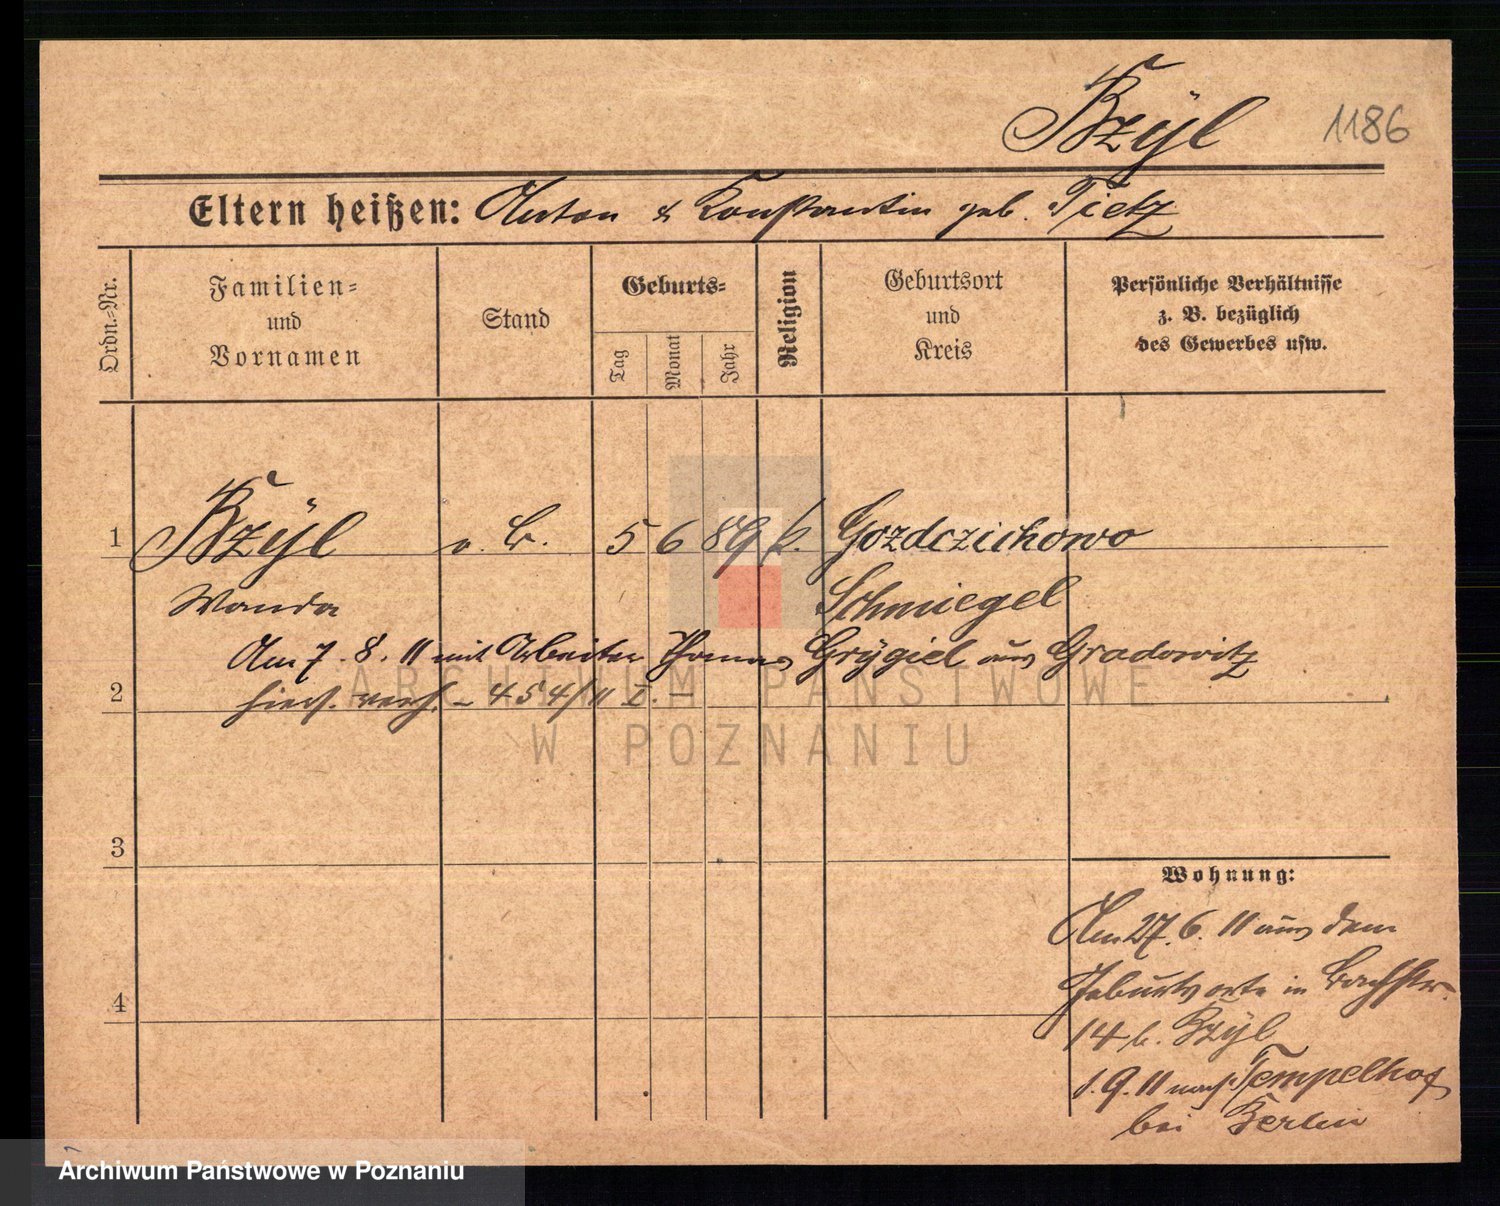 Bzÿl
1186
Eltern heißen: Anton & Konstantin geb. Tietz
Ordn.-Nr.
Familien-
und
Vornamen
Stand
Geburts-
Tag
Monat
Jahr
Religion
Geburtsort
und
Kreis
Persönliche Verhältnisse
z. B. bezüglich
des Gewerbes usw.
1 Bzÿl o. B. 5 6 89 k. Gozdczichowo
Wanda Schmiegel
Am 7. 8. 11 mit Arbeiter Thomas Grÿgiel aus Gradowitz
2 hier verh. - 454/11 I. -
ARCHIWUM PAŃSTWOWE
W POZNANIU
3
Wohnung:
Am 27. 6. 11 aus dem
Geburtsorte in Bachstr.
4
14 b. Bzÿl
1. 9. 11 nach Tempelhof
bei Berlin
Archiwum Państwowe w Poznaniu